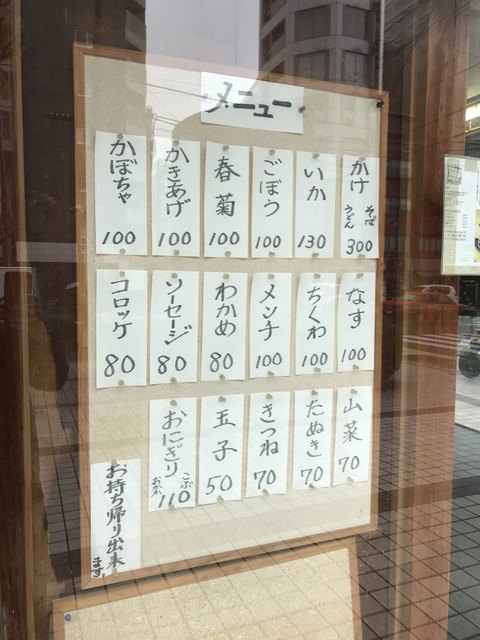 メニュー
かけ そば うどん 300
いか 130
ごぼう 100
春菊 100
かきあげ 100
かぼちゃ 100
なす 100
ちくわ 100
メンチ 100
わかめ 80
ソーセージ 80
コロッケ 80
山菜 70
たぬき 70
きつね 70
玉子 50
おにぎり こぶ おかか 110
お持ち帰り出来ます。